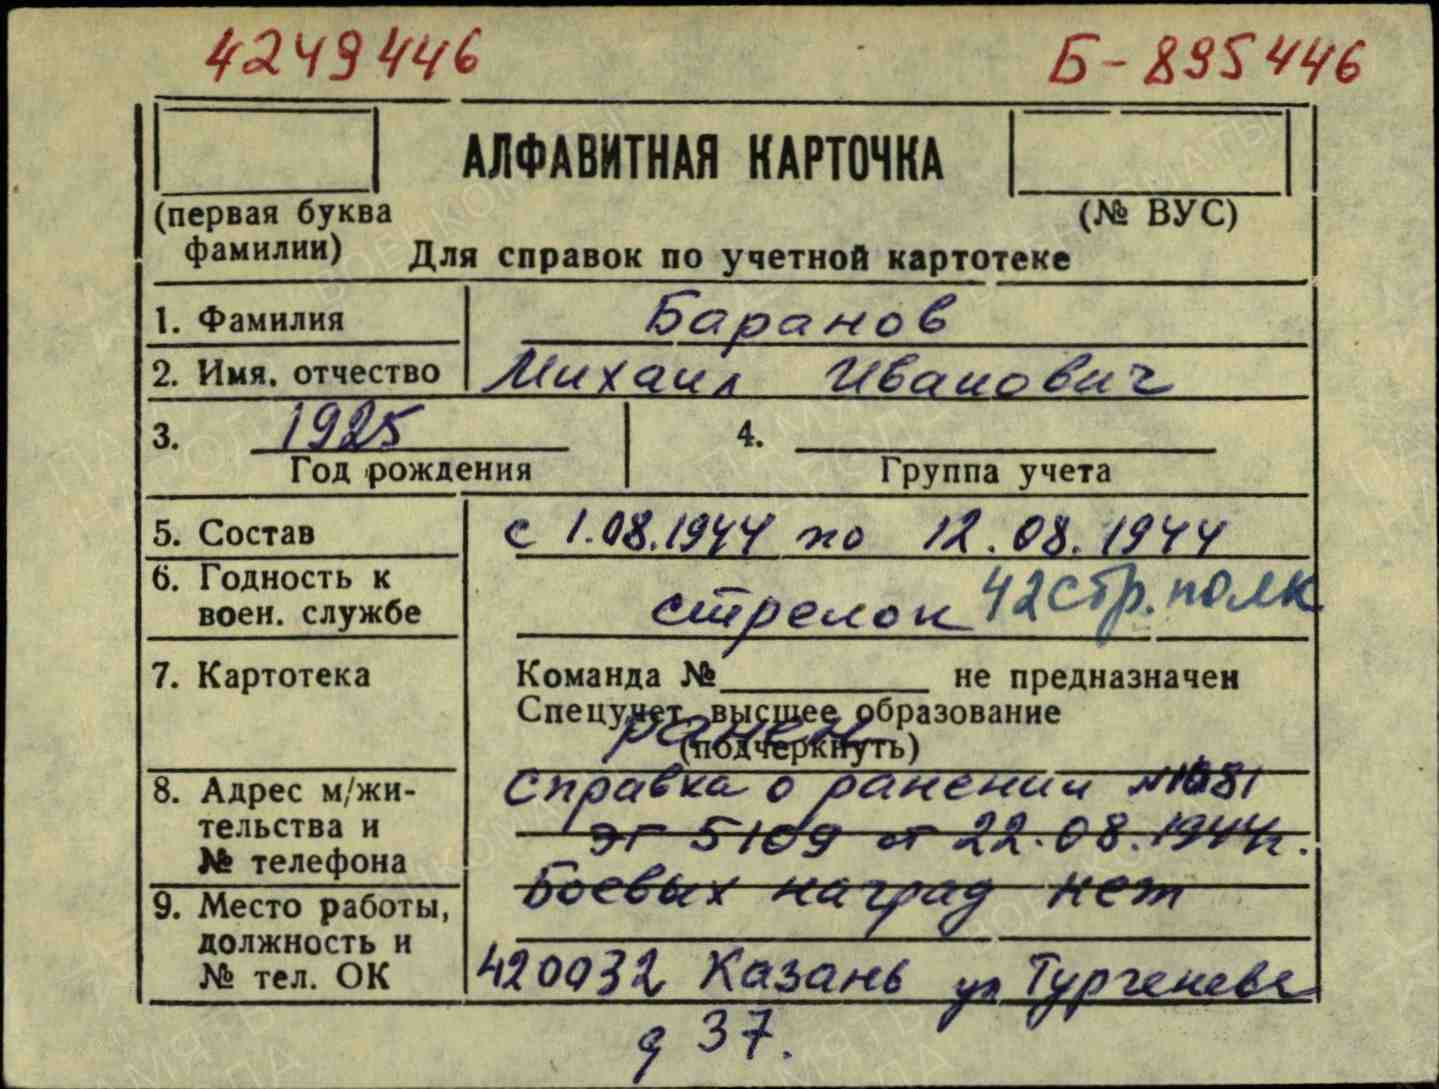 4249446 Б-895446
АЛФАВИТНАЯ КАРТОЧКА
(первая буква фамилии) (№ ВУС)
Для справок по учетной картотеке
1. Фамилия Баранов
2. Имя, отчество Михаил Иванович
3. 1925 4.
Год рождения Группа учета
5. Состав с 1.08.1944 по 12.08.1944
6. Годность к воен. службе стрелок 42 стр. полк
7. Картотека Команда № не предназначен
Спецучет, высшее образование
ранен
(подчеркнуть)
8. Адрес м/жи-
тельства и
№ телефона
справка о ранении
ЭГ 5109 от 22.08.1944г.
Боевых наград нет
9. Место работы,
должность и
№ тел. ОК
420032 Казань ул Тургенева
д 37.